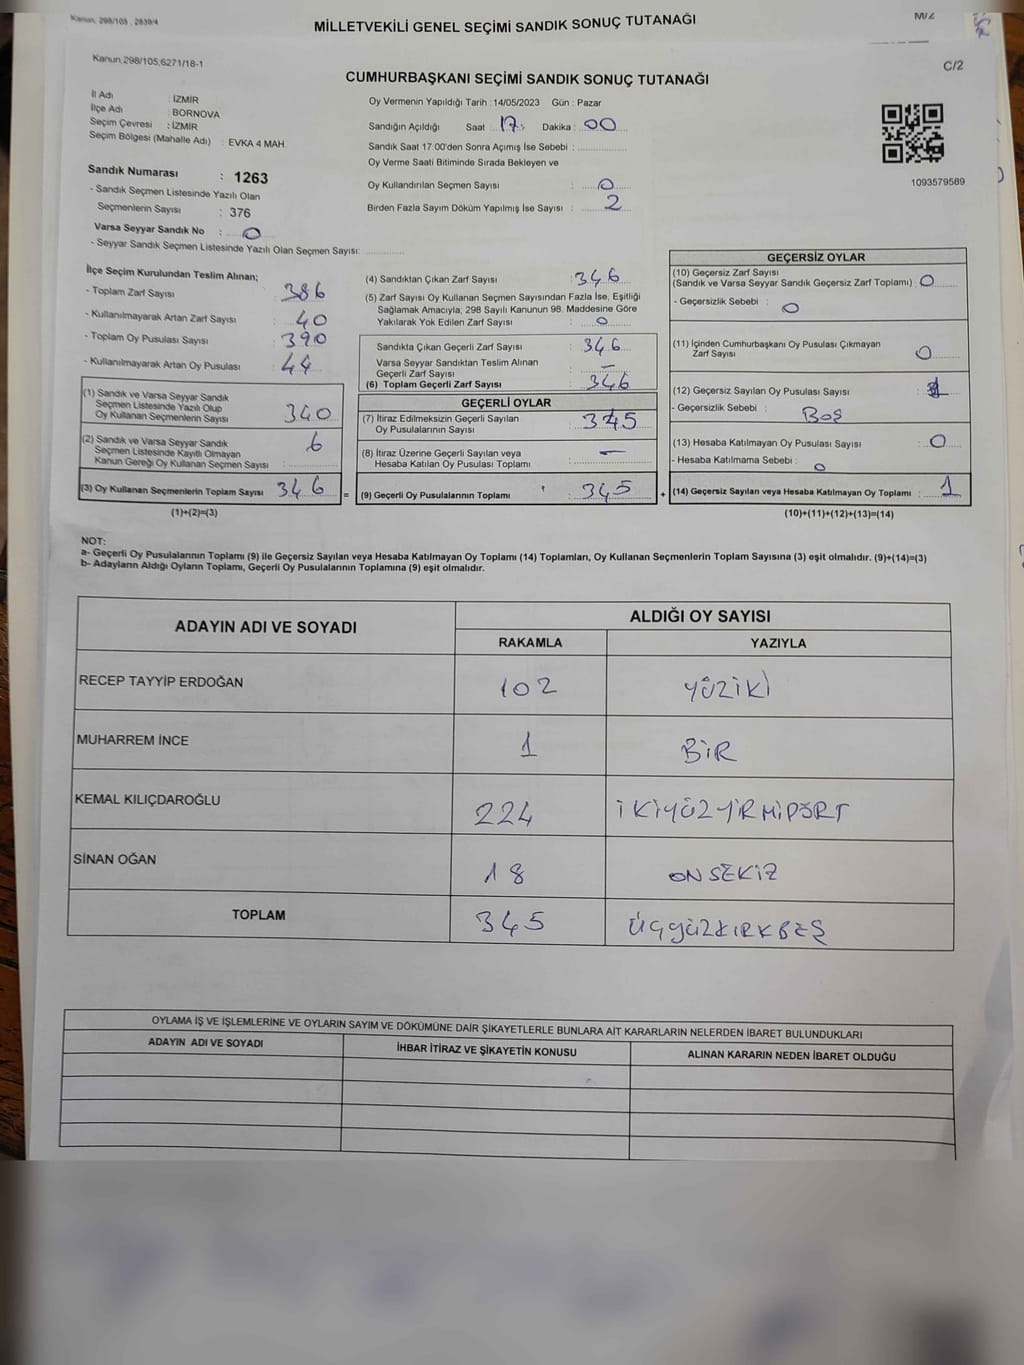 Kanun, 298/105, 2839/4
MİLLETVEKİLİ GENEL SEÇİMİ SANDIK SONUÇ TUTANAĞI
M/2
Kanun,298/105,6271/18-1
C/2
CUMHURBAŞKANI SEÇİMİ SANDIK SONUÇ TUTANAĞI
İl Adı : İZMİR
İlçe Adı : BORNOVA
Seçim Çevresi : İZMİR
Seçim Bölgesi (Mahalle Adı) : EVKA 4 MAH.
Sandık Numarası : 1263
- Sandık Seçmen Listesinde Yazılı Olan
Seçmenlerin Sayısı : 376
Varsa Seyyar Sandık No : 0
- Seyyar Sandık Seçmen Listesinde Yazılı Olan Seçmen Sayısı:
Oy Vermenin Yapıldığı Tarih : 14/05/2023 Gün : Pazar
Sandığın Açıldığı Saat : 17 Dakika : 00
Sandık Saat 17:00'den Sonra Açımış İse Sebebi :
Oy Verme Saati Bitiminde Sırada Bekleyen ve
Oy Kullandırılan Seçmen Sayısı : 0
Birden Fazla Sayım Döküm Yapılmış İse Sayısı : 2
1093579589
İlçe Seçim Kurulundan Teslim Alınan;
- Toplam Zarf Sayısı : 386
- Kullanılmayarak Artan Zarf Sayısı : 40
- Toplam Oy Pusulası Sayısı : 390
- Kullanılmayarak Artan Oy Pusulası : 44
(1) Sandık ve Varsa Seyyar Sandık
Seçmen Listesinde Yazılı Olup
Oy Kullanan Seçmenlerin Sayısı : 340
(2) Sandık ve Varsa Seyyar Sandık
Seçmen Listesinde Kayıtlı Olmayan
Kanun Gereği Oy Kullanan Seçmen Sayısı : 6
(3) Oy Kullanan Seçmenlerin Toplam Sayısı 346 =
(1)+(2)=(3)
(4) Sandıktan Çıkan Zarf Sayısı : 346
(5) Zarf Sayısı Oy Kullanan Seçmen Sayısından Fazla İse, Eşitliği
Sağlamak Amacıyla, 298 Sayılı Kanunun 98. Maddesine Göre
Yakılarak Yok Edilen Zarf Sayısı : 0
Sandıkta Çıkan Geçerli Zarf Sayısı : 346
Varsa Seyyar Sandıktan Teslim Alınan
Geçerli Zarf Sayısı : —
(6) Toplam Geçerli Zarf Sayısı : 346
GEÇERLİ OYLAR
(7) İtiraz Edilmeksizin Geçerli Sayılan
Oy Pusulalarının Sayısı : 345
(8) İtiraz Üzerine Geçerli Sayılan veya
Hesaba Katılan Oy Pusulası Toplamı : —
(9) Geçerli Oy Pusulalarının Toplamı : 345 +
GEÇERSİZ OYLAR
(10) Geçersiz Zarf Sayısı
(Sandık ve Varsa Seyyar Sandık Geçersiz Zarf Toplamı) : 0
- Geçersizlik Sebebi : 0
(11) İçinden Cumhurbaşkanı Oy Pusulası Çıkmayan
Zarf Sayısı : 0
(12) Geçersiz Sayılan Oy Pusulası Sayısı : 1
- Geçersizlik Sebebi : Boş
(13) Hesaba Katılmayan Oy Pusulası Sayısı : 0
- Hesaba Katılmama Sebebi : 0
(14) Geçersiz Sayılan veya Hesaba Katılmayan Oy Toplamı : 1
(10)+(11)+(12)+(13)=(14)
NOT:
a- Geçerli Oy Pusulalarının Toplamı (9) ile Geçersiz Sayılan veya Hesaba Katılmayan Oy Toplamı (14) Toplamları, Oy Kullanan Seçmenlerin Toplam Sayısına (3) eşit olmalıdır. (9)+(14)=(3)
b- Adayların Aldığı Oyların Toplamı, Geçerli Oy Pusulalarının Toplamına (9) eşit olmalıdır.
ADAYIN ADI VE SOYADI ALDIĞI OY SAYISI
RAKAMLA YAZIYLA
RECEP TAYYİP ERDOĞAN 102 YÜZİKİ
MUHARREM İNCE 1 BİR
KEMAL KILIÇDAROĞLU 224 İKİYÜZYİRMİDÖRT
SİNAN OĞAN 18 ONSEKİZ
TOPLAM 345 ÜÇYÜZKIRKBEŞ
OYLAMA İŞ VE İŞLEMLERİNE VE OYLARIN SAYIM VE DÖKÜMÜNE DAİR ŞİKAYETLERLE BUNLARA AİT KARARLARIN NELERDEN İBARET BULUNDUKLARI
ADAYIN ADI VE SOYADI İHBAR İTİRAZ VE ŞİKAYETİN KONUSU ALINAN KARARIN NEDEN İBARET OLDUĞU